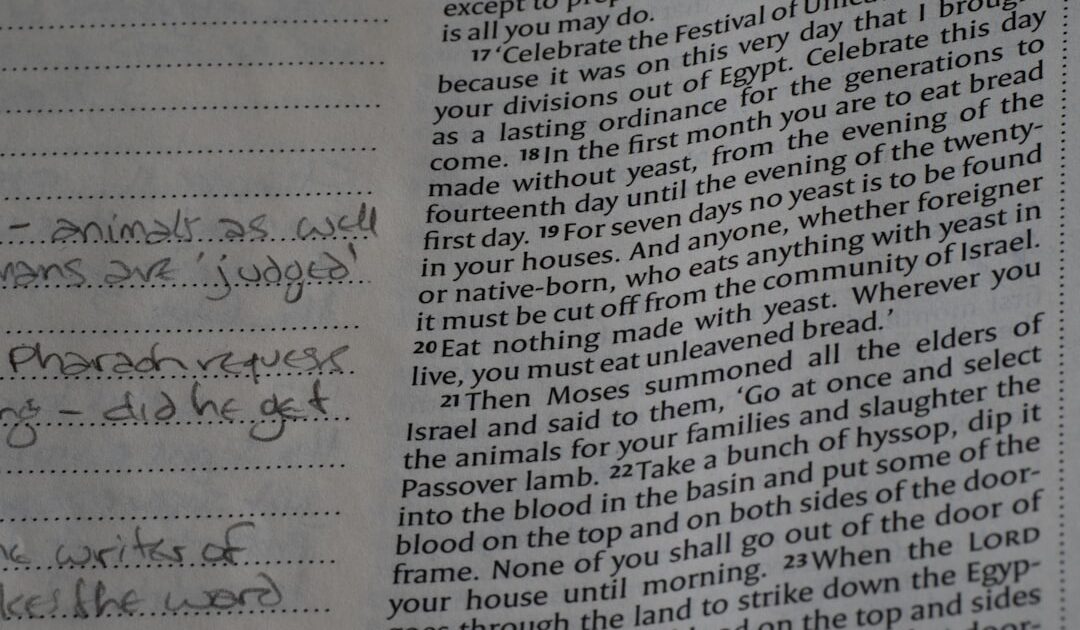 - animals as well
are 'judged'
Pharaoh
- did he get
writer of
the word
except to
is all you may do.
17 ‘Celebrate the Festival of
because it was on this very day that I
your divisions out of Egypt. Celebrate this day
as a lasting ordinance for the generations to
come. 18 In the first month you are to eat bread
made without yeast, from the evening of the
fourteenth day until the evening of the twenty-
first day. 19 For seven days no yeast is to be found
in your houses. And anyone, whether foreigner
or native-born, who eats anything with yeast in
it must be cut off from the community of Israel.
20 Eat nothing made with yeast. Wherever you
live, you must eat unleavened bread.’
21 Then Moses summoned all the elders of
Israel and said to them, ‘Go at once and select
the animals for your families and slaughter the
Passover lamb. 22 Take a bunch of hyssop, dip it
into the blood in the basin and put some of the
blood on the top and on both sides of the door-
frame. None of you shall go out of the door of
your house until morning. 23 When the LORD
through the land to strike down the Egyp-
on the top and sides